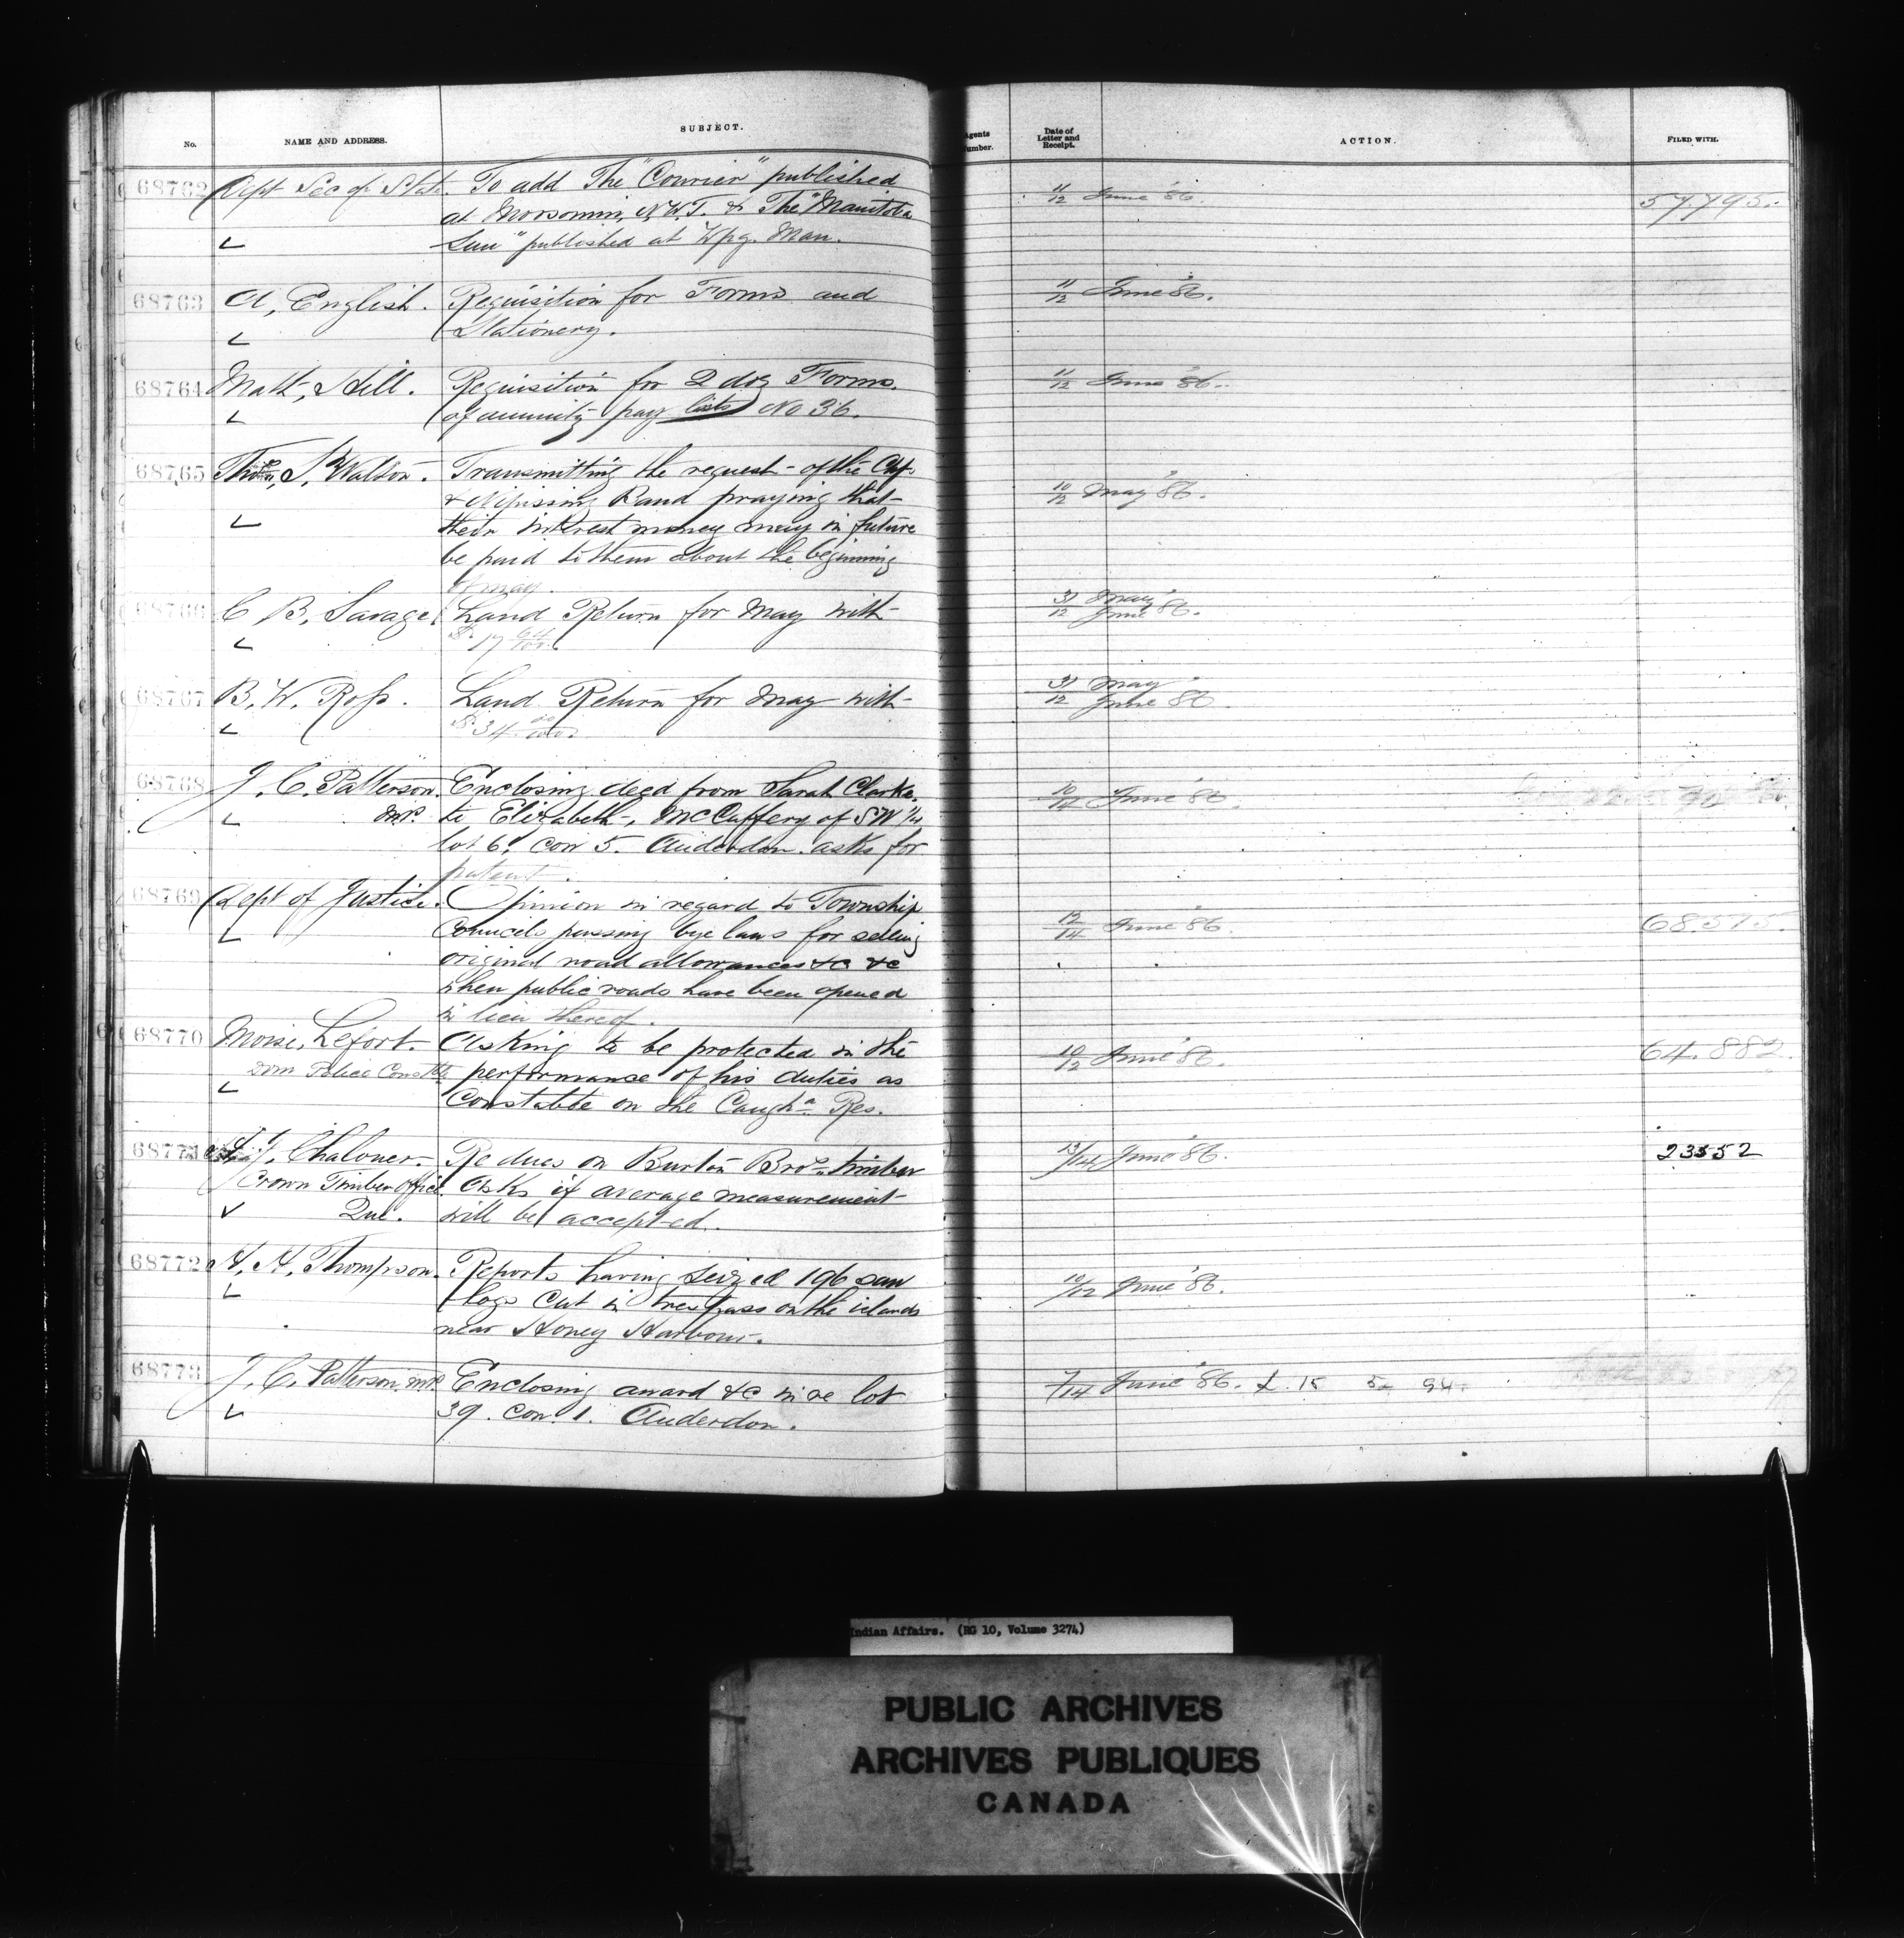 No. NAME AND ADDRESS. SUBJECT. Agents Number. Date of Letter and Receipt. ACTION. FILED WITH.
68762 Dept Sec of State. To add The "Courier" published 11/12 June '86. 57.795.
at Moosomin, N.W.T. & The "Manitoba
Sun" published at Wpg. Man.
68763 A. English. Requisition for Forms and 11/12 June '86.
Stationery.
68764 Matt. Hill. Requisition for 2 doz Forms. 11/12 June '86.
of annuity pay lists No 36.
68765 Thos. S. Walton. Transmitting the request of the
& Nipissing Band praying that 10/12 May '86.
their interest money may in future
be paid to them about the beginning
of May.
68766 C B. Savage. Land Return for May with 31/12 May June '86.
$ 17 64/100.
68767 B. W. Ross. Land Return for May with 31/12 May June 86
$ 34.
68768 J. C. Patterson. Enclosing deed from Sarah Clarke. 10/14 June '86.
M.P. to Elizabeth McCaffery of SW 1/4
lot 6. con 5. Anderdon. asks for
patent.
68769 Dept of Justice. Opinion in regard to Township
Councils passing bye laws for selling 12/14 June '86. 68.575.
original road allowances &c &c
when public roads have been opened
in lieu thereof.
68770 Moise Lefort. Asking to be protected in the 10/12 June '86. 64.882.
Dom Police Constble performance of his duties as
Constable on the Caugha. Res.
68771 J. Chaloner. Re dues on Burton Bros. timber 12/14 June '86. 23552
Crown Timber Office. Asks if average measurement
Que. will be accepted.
68772 H. H. Thompson. Reports having seized 196 saw 10/12 June '86.
logs cut in trespass on the islands
near Honey Harbour.
68773 J. C. Patterson. M.P. Enclosing award &c in re lot 7/14 June '86. L. 15 5 94.
39. Con. 1. Anderdon.
Indian Affairs. (RG 10, Volume 3274)
PUBLIC ARCHIVES
ARCHIVES PUBLIQUES
CANADA